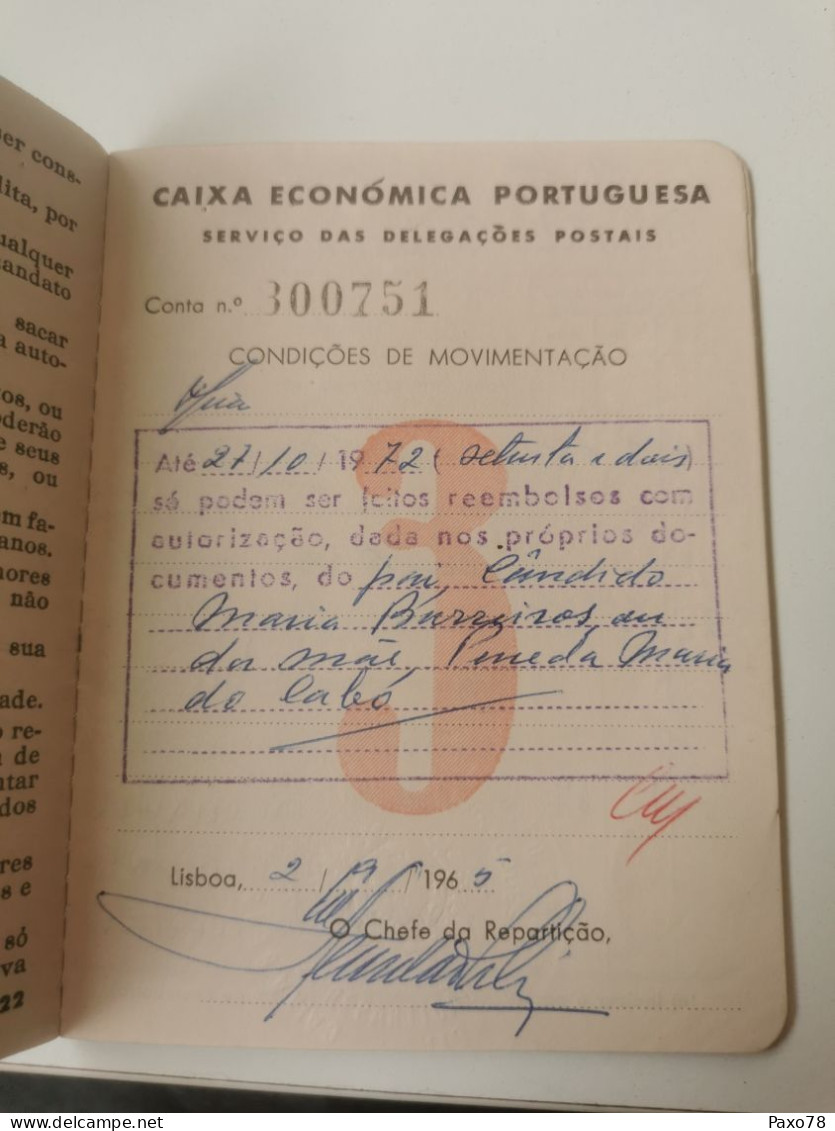 ser cons-
dita, por
ualquer
nandato
sacar
a auto-
os, ou
oderão
e seus
s, ou
em fa-
anos.
nores
não
sua
dade.
o re-
a de
ntar
dos
res
s e
só
va
22
CAIXA ECONÓMICA PORTUGUESA
SERVIÇO DAS DELEGAÇÕES POSTAIS
Conta n.º 300751
CONDIÇÕES DE MOVIMENTAÇÃO
3
Até 27/10/1972 (setenta e dois)
só podem ser feitos reembolsos com
autorização, dada nos próprios do-
cumentos, do pai Cândido
Maria Barreiros, ou
da mãe, Maria
do Cabó
Lisboa, 2 / / 1965
O Chefe da Repartição,
Paxo78